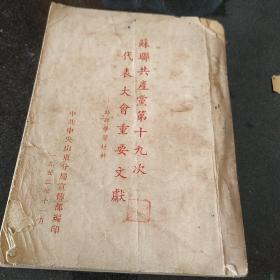 蘇聯共產黨第十九次
代表大會重要文獻
學習材料
中共中央山東分局宣傳部編印
一九五二年十月